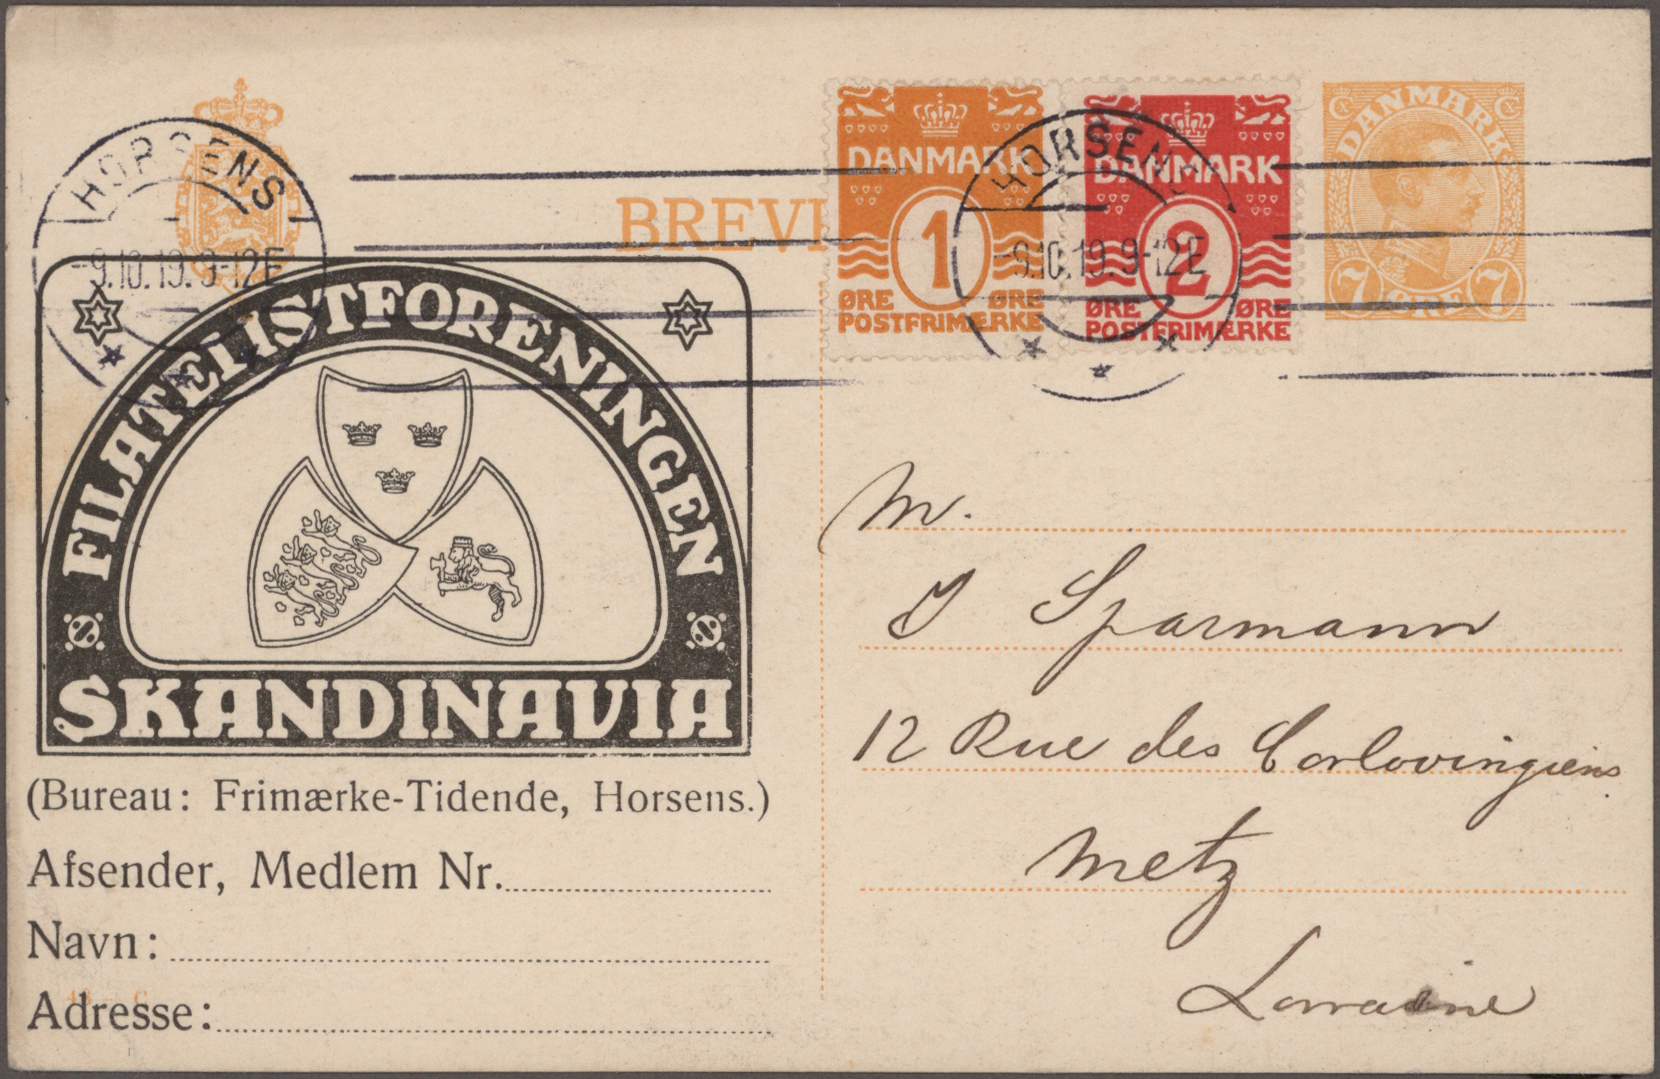 HORSENS
-9.10.19.9-12E
BREVK
DANMARK
1
ØRE ØRE
POSTFRIMÆRKE
HORSENS
-9.10.19.9-12E
DANMARK
2
ØRE ØRE
POSTFRIMÆRKE
DANMARK
7 ØRE 7
FILATELISTFORENINGEN
SKANDINAVIA
(Bureau: Frimærke-Tidende, Horsens.)
Afsender, Medlem Nr.
Navn:
Adresse:
M.
J Sparmann
12 Rue des Carlovingiens
Metz
Lorraine